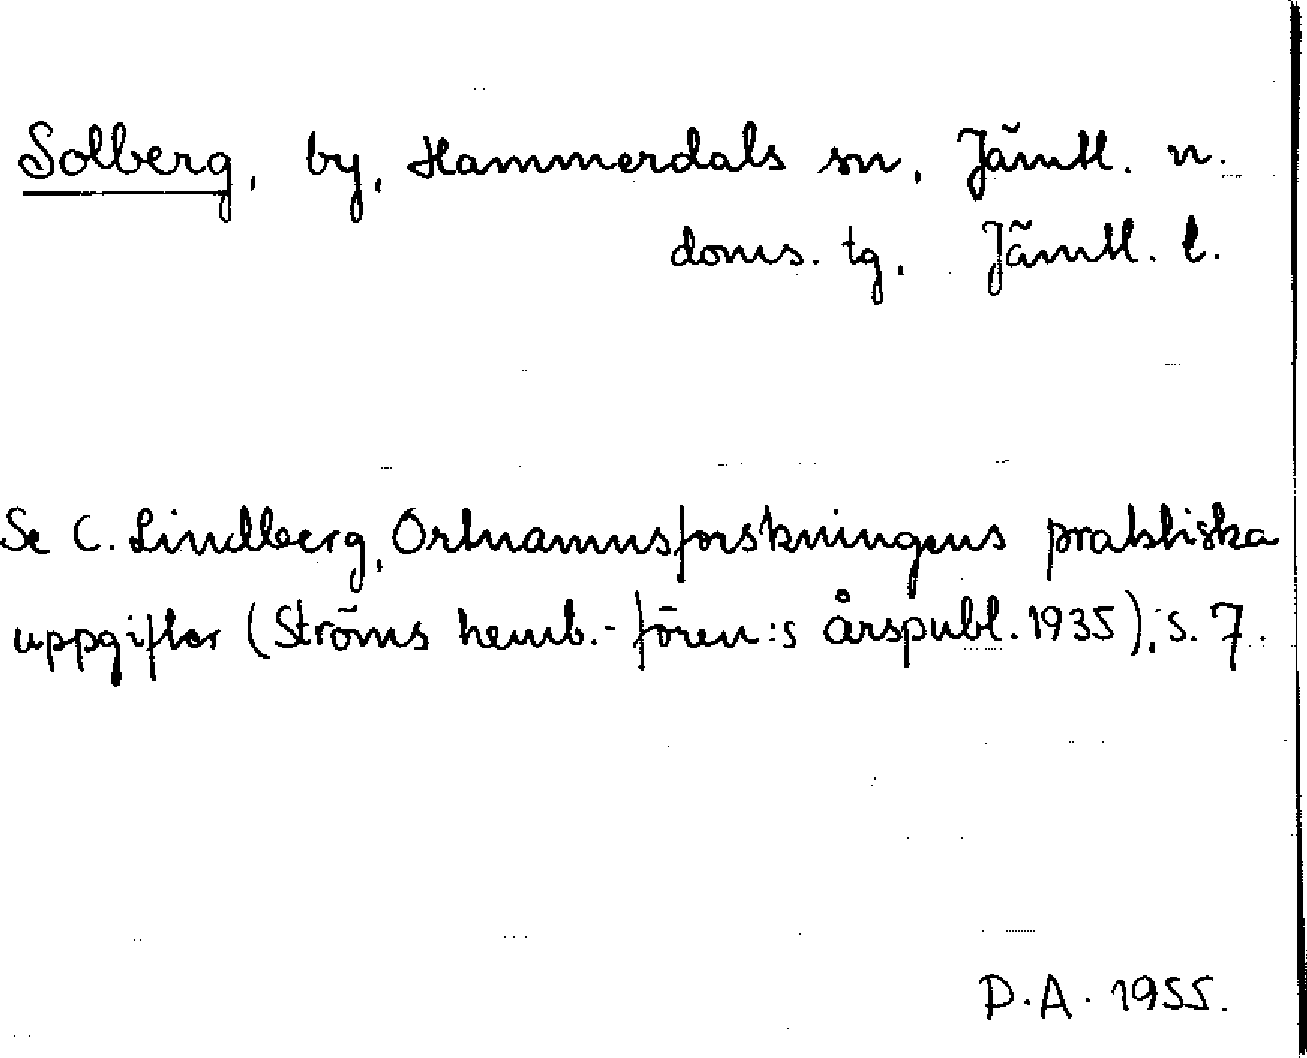 Solberg, by, Hammerdals sn, Jämtl. n.
doms. tg, Jämtl. l.
Se C. Lindberg, Ortnamnsforskningens praktiska
uppgifter (Ströms hemb.-fören:s årspubl. 1935), s. 7.
D.A. 1955.